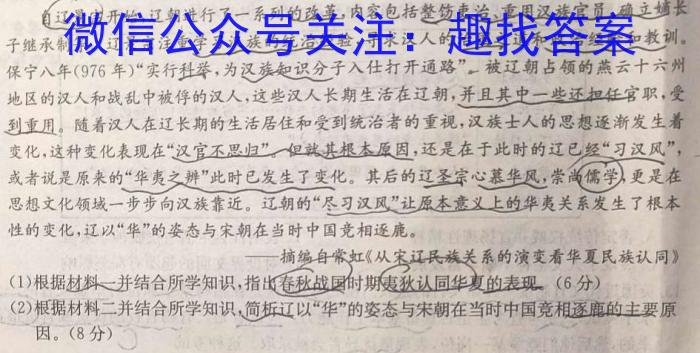 自辽景宗开始,辽朝进行了一系列的改革,内容包括整饬吏治、重用汉族官员、确立嫡长
微信公众号关注:趣找答案
子继承制
保宁八年(976年)“实行科举,为汉族知识分子入仕打开通路”。被辽朝占领的燕云十六州
地区的汉人和战乱中被俘的汉人,这些汉人长期生活在辽朝,并且其中一些还担任官职,受
到重用。随着汉人在辽长期的生活居住和受到统治者的重视,汉族士人的思想逐渐发生着
变化,这种变化表现在“汉官不思归”。但就其根本原因,还是在于此时的辽已经“习汉风”,
或者说是原来的“华夷之辨”此时已发生了变化。其后的辽圣宗心慕华风,崇尚儒学,更是在
思想文化领域一步步向汉族靠近。辽朝的“尽习汉风”让原本意义上的华夷关系发生了根本
性的变化,辽以“华”的姿态与宋朝在当时中国竞相逐鹿。
摘编自常虹《从宋辽民族关系的演变看华夏民族认同》
(1)根据材料一并结合所学知识,指出春秋战国时期夷狄认同华夏的表现。(6分)
(2)根据材料二并结合所学知识,简析辽以“华”的姿态与宋朝在当时中国竞相逐鹿的主要原
因。(8分)